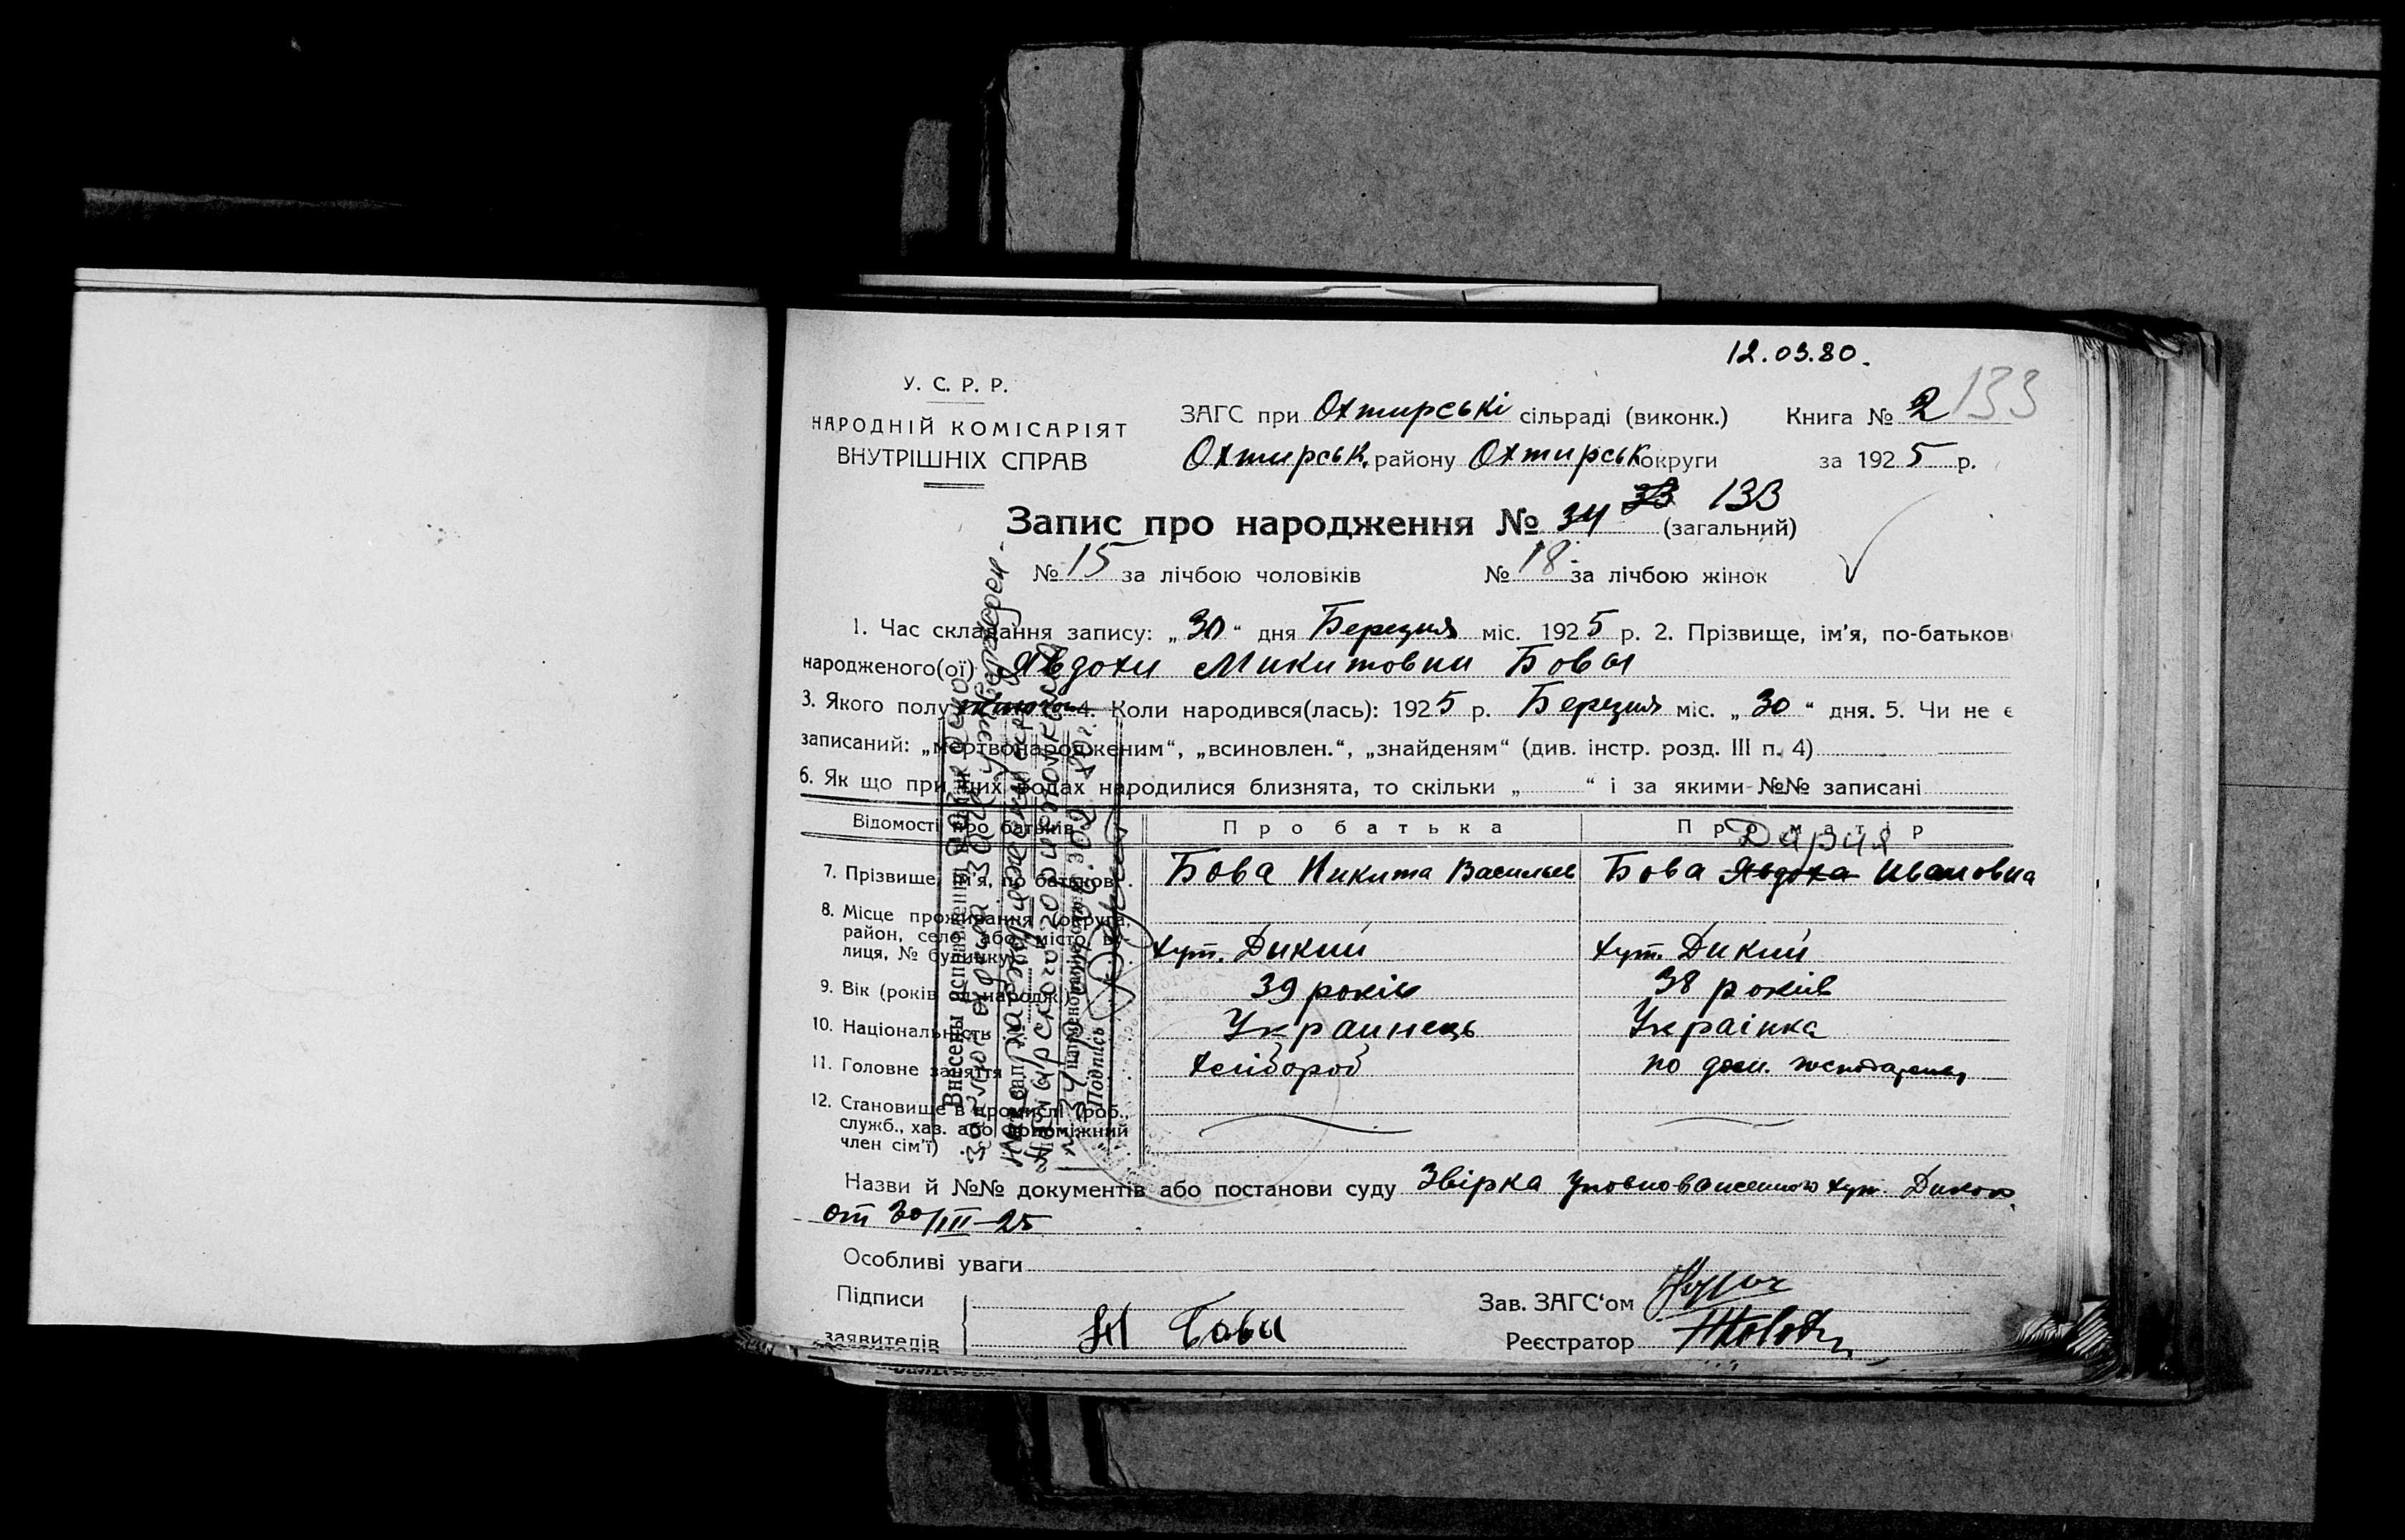 12.03.80.
У. С. Р. Р.
НАРОДНІЙ КОМІСАРІЯТ
ВНУТРІШНІХ СПРАВ
ЗАГС при Охтирські сільраді (виконк.) Книга № 2 133
Охтирськ. району Охтирськ округи за 1925 р.
Запис про народження № 34 33 133 (загальний)
№ 15 за лічбою чоловіків № 18 за лічбою жінок
1. Час складання запису: „30“ дня Березня міс. 1925 р. 2. Прізвище, ім'я, по-батьков
народженого(ої) Явдохи Микитовни Бовы
3. Якого полу 4. Коли народився(лась): 1925 р. Березня міс. „30“ дня. 5. Чи не є
записаний: „мертвонародженим“, „всиновлен.“, „знайденям“ (див. інстр. розд. III п. 4)
6. Як що при цих родах народилися близнята, то скільки „ “ і за якими №№ записані
Відомості про батьків Про батька Про матір
Дария
7. Прізвище, ім'я, по батькові. Бова Никита Васильев Бова Явдоха Ивановна
8. Місце проживання (округа,
район, село або місто, ву-
лиця, № будинку) хут. Дикий хут. Дикий
9. Вік (років од народж.) 39 років 38 років
10. Національність Украинець Українка
11. Головне заняття хлібороб по дом. господарству
12. Становище в промислі (роб.,
служб., хаз. або допоміжний
член сім'ї)
Назви й №№ документів або постанови суду Звірка уповноваженного хут. Дикого
от 30/III-25
Особливі уваги
Підписи
заявителів Бова
Зав. ЗАГС'ом
Реєстратор
Внесены исправления
Подпись